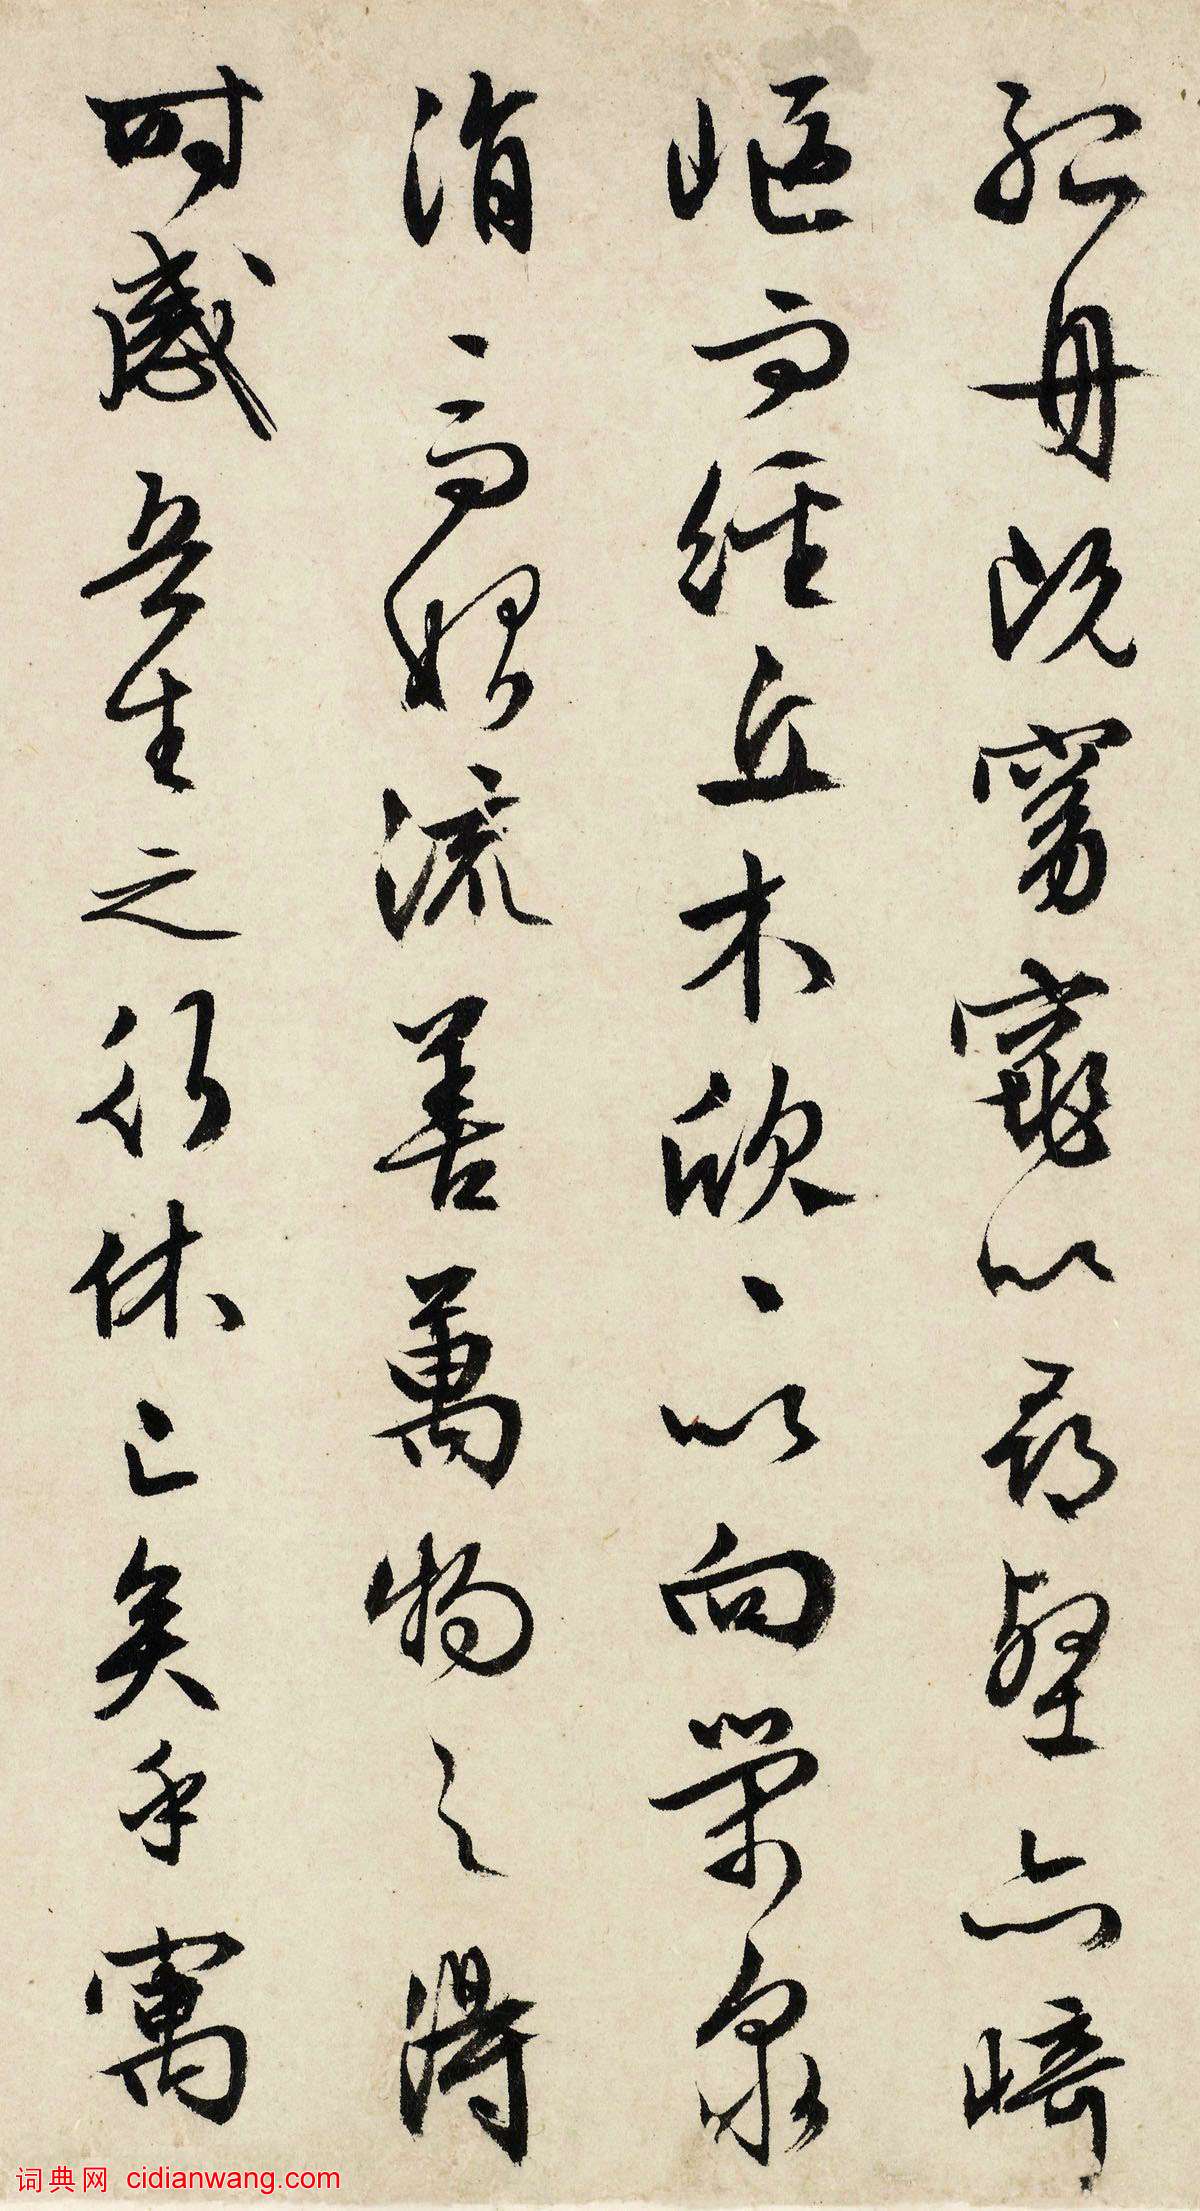 孤舟既窈窕以尋壑亦崎
嶇而經丘木欣、以向榮泉
涓、而始流善萬物之得
時感吾生之行休已矣乎寓
词典网 cidianwang.com